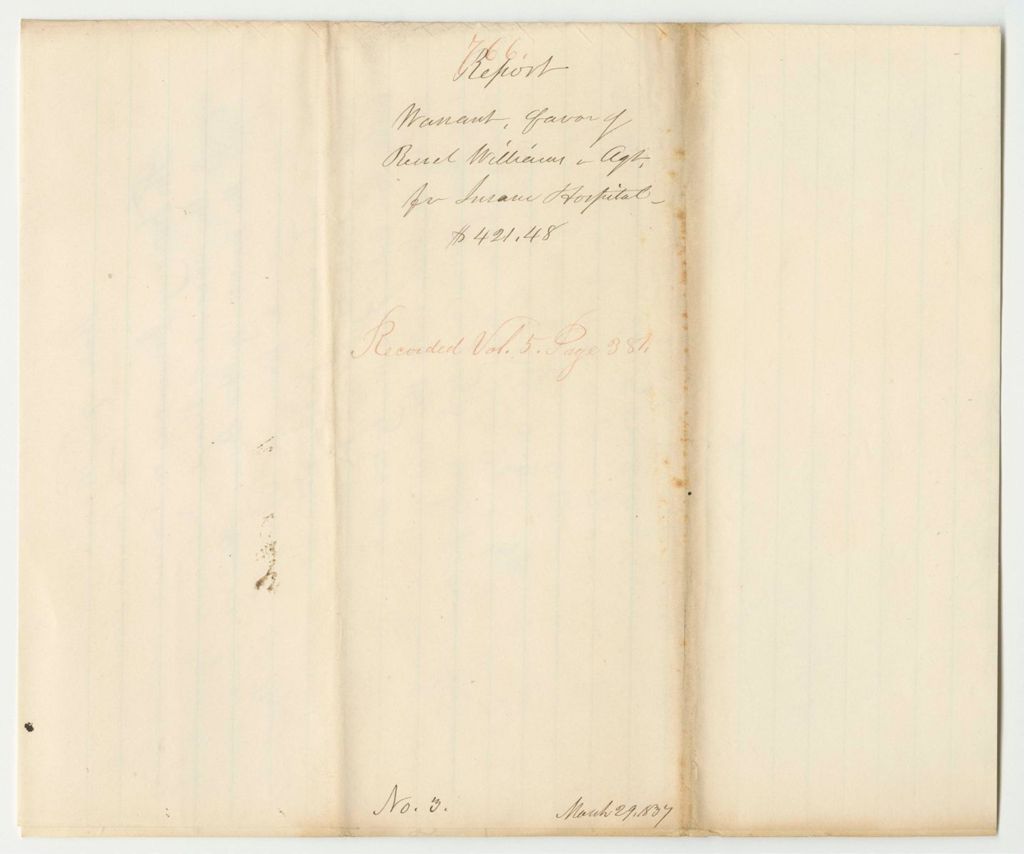 766.
Report
Warrant, favor of
Reuel Williams Agt.
for Insane Hospital
$421.48
Recorded Vol. 5. Page 381.
No. 3.
March 29, 1837